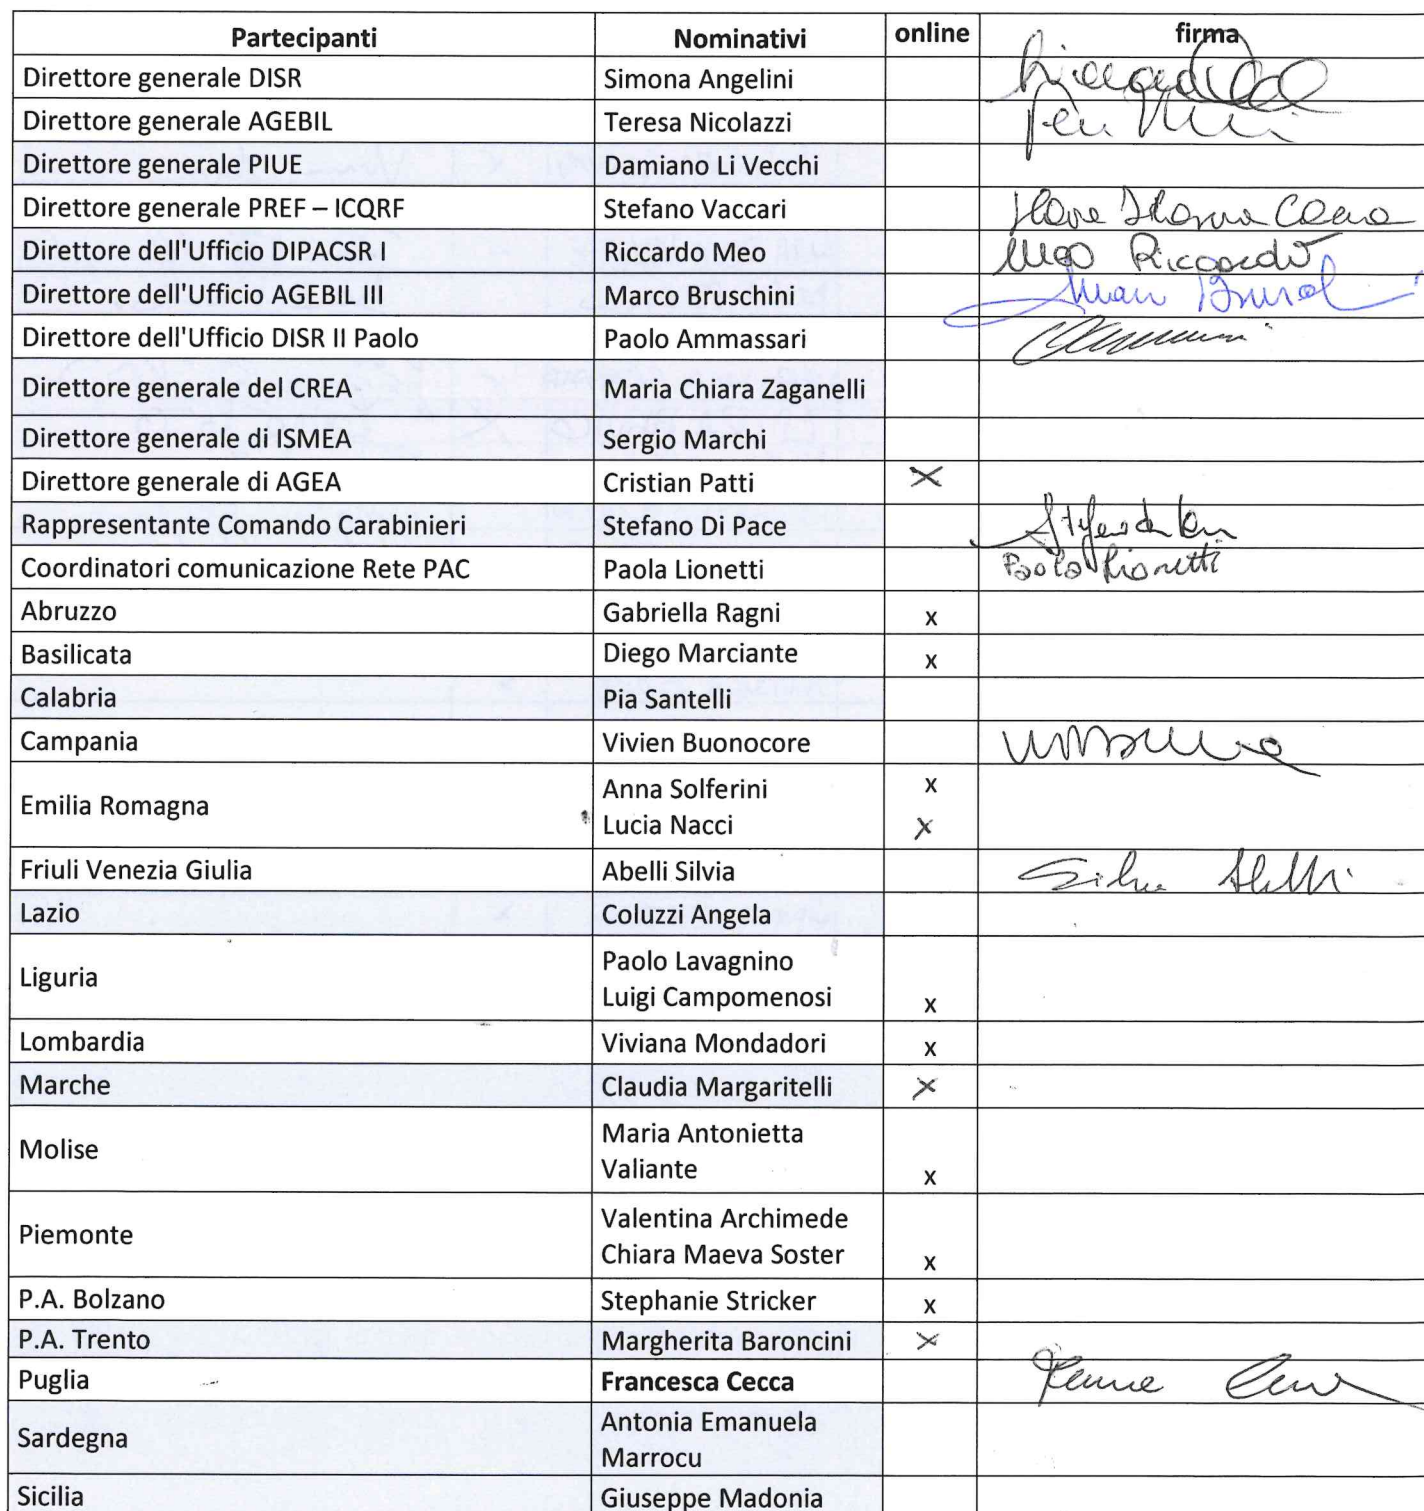 Partecipanti Nominativi online firma
Direttore generale DISR Simona Angelini
Direttore generale AGEBIL Teresa Nicolazzi
Direttore generale PIUE Damiano Li Vecchi
Direttore generale PREF – ICQRF Stefano Vaccari
Direttore dell'Ufficio DIPACSR I Riccardo Meo Meo Riccardo
Direttore dell'Ufficio AGEBIL III Marco Bruschini
Direttore dell'Ufficio DISR II Paolo Paolo Ammassari
Direttore generale del CREA Maria Chiara Zaganelli
Direttore generale di ISMEA Sergio Marchi
Direttore generale di AGEA Cristian Patti x
Rappresentante Comando Carabinieri Stefano Di Pace
Coordinatori comunicazione Rete PAC Paola Lionetti Paola Lionetti
Abruzzo Gabriella Ragni x
Basilicata Diego Marciante x
Calabria Pia Santelli
Campania Vivien Buonocore
Emilia Romagna
Anna Solferini x
Lucia Nacci x
Friuli Venezia Giulia Abelli Silvia Silvia Abelli
Lazio Coluzzi Angela
Liguria
Paolo Lavagnino
Luigi Campomenosi x
Lombardia Viviana Mondadori x
Marche Claudia Margaritelli x
Molise
Maria Antonietta
Valiante x
Piemonte
Valentina Archimede
Chiara Maeva Soster x
P.A. Bolzano Stephanie Stricker x
P.A. Trento Margherita Baroncini x
Puglia Francesca Cecca
Sardegna
Antonia Emanuela
Marrocu
Sicilia Giuseppe Madonia